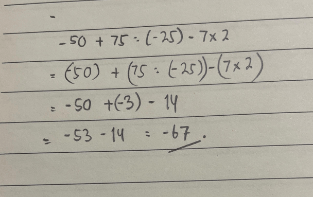 -
-50 + 75 : (-25) - 7 x 2
= (50) + (75 : (-25)) - (7 x 2)
= -50 + (-3) - 14
= -53 - 14 = -67.